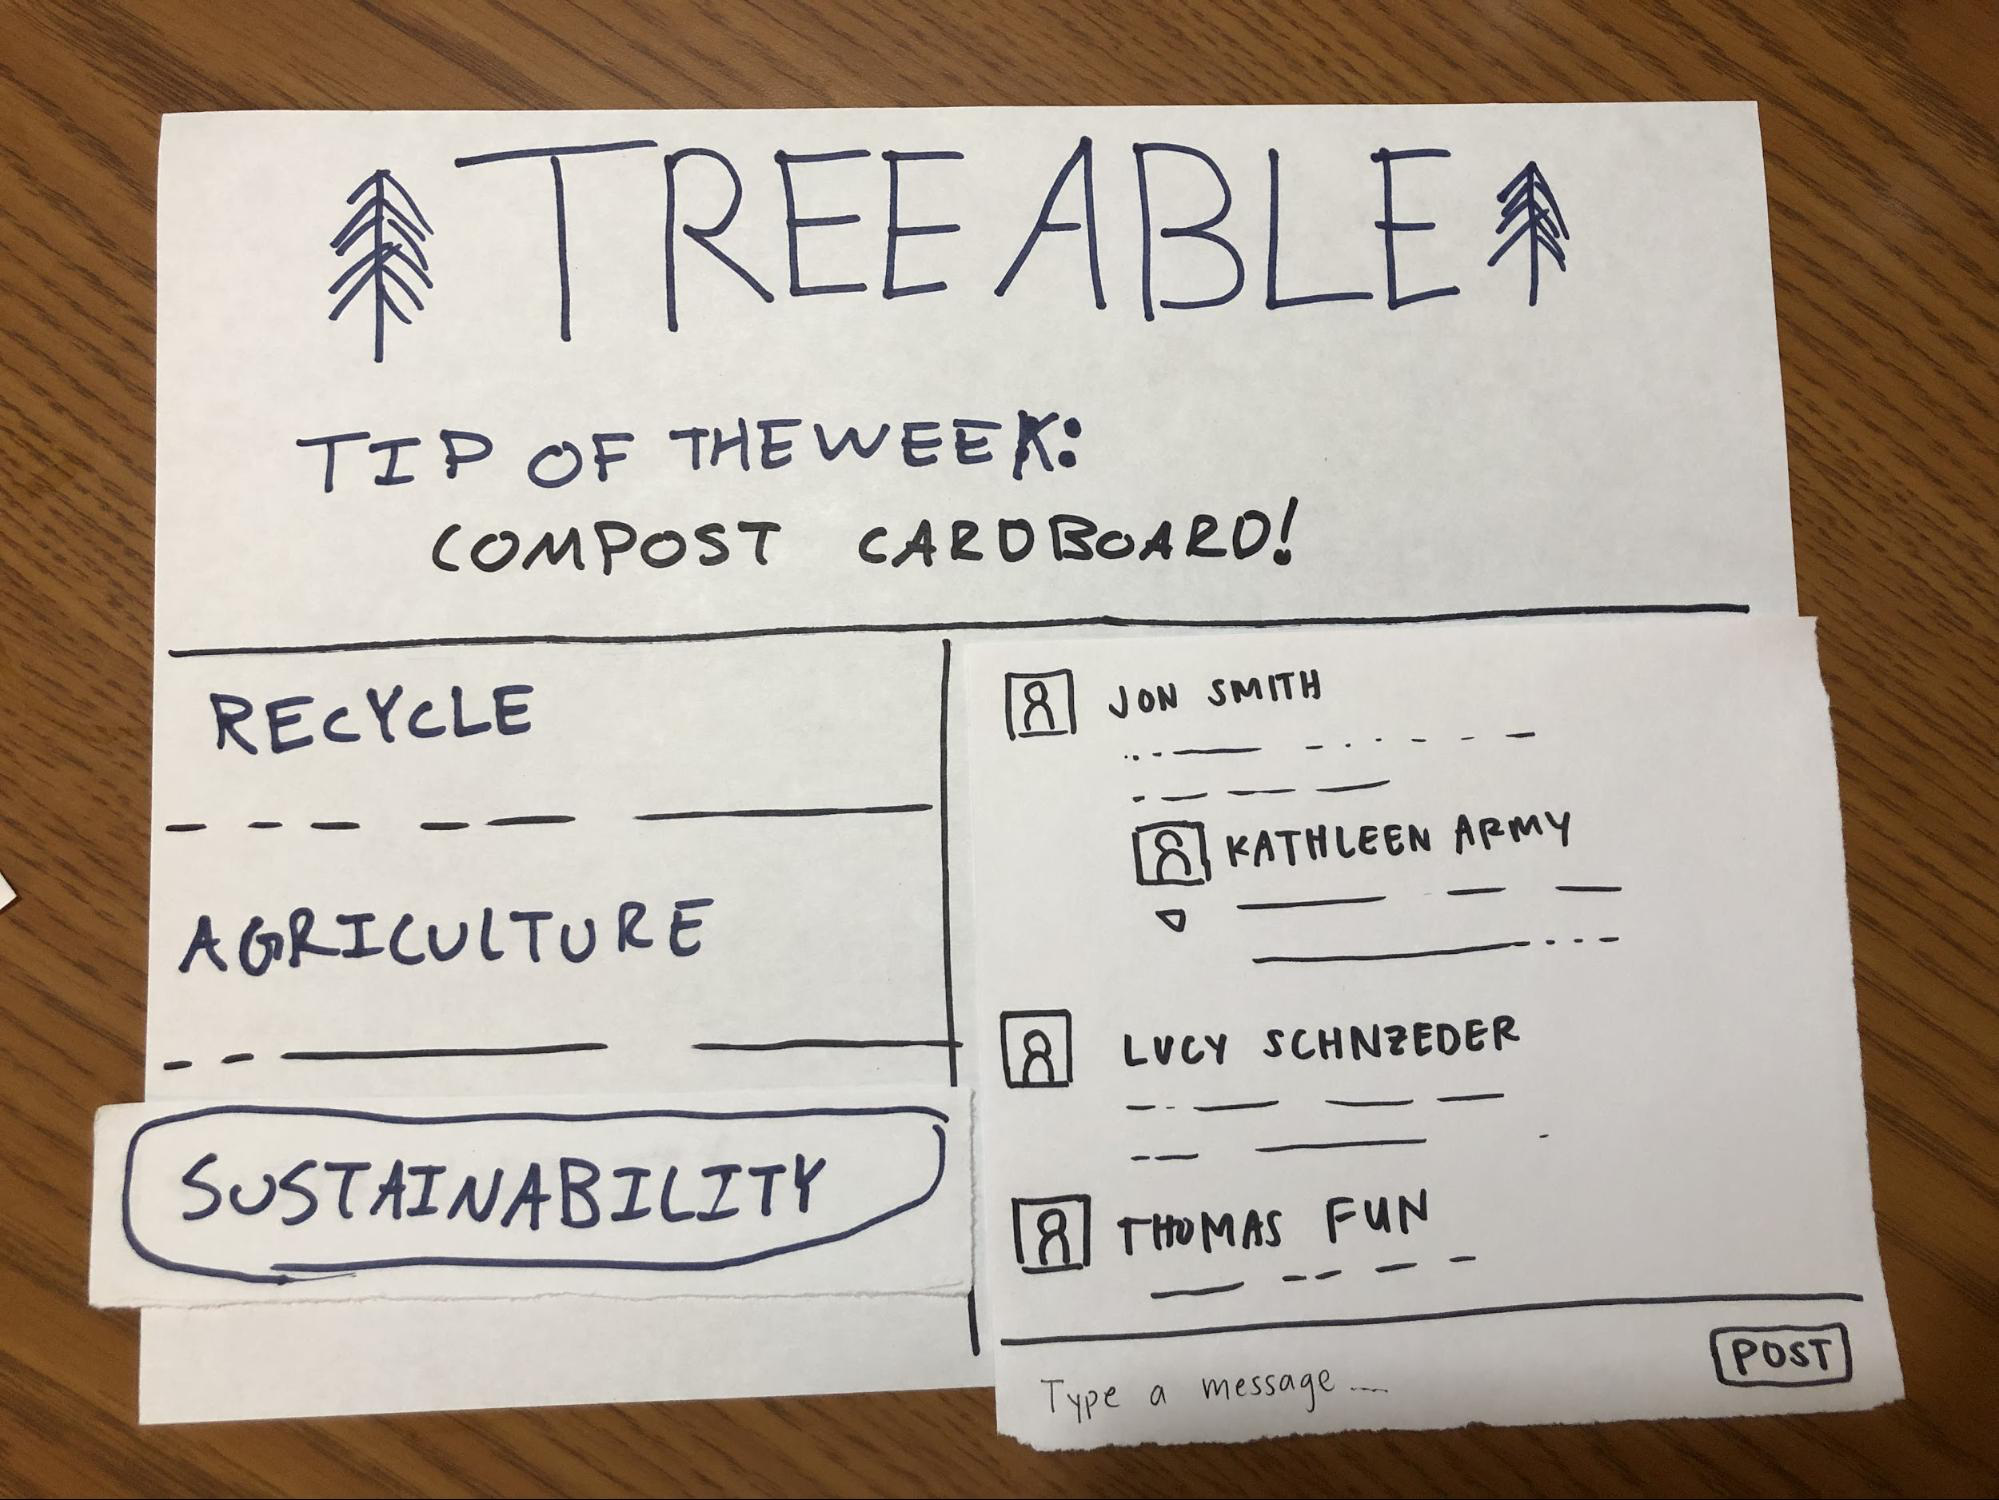 TREE ABLE
TIP OF THE WEEK:
COMPOST CARDBOARD!
RECYCLE
AGRICULTURE
SUSTAINABILITY
JON SMITH
KATHLEEN ARMY
LUCY SCHNZEDER
THOMAS FUN
Type a message...
POST